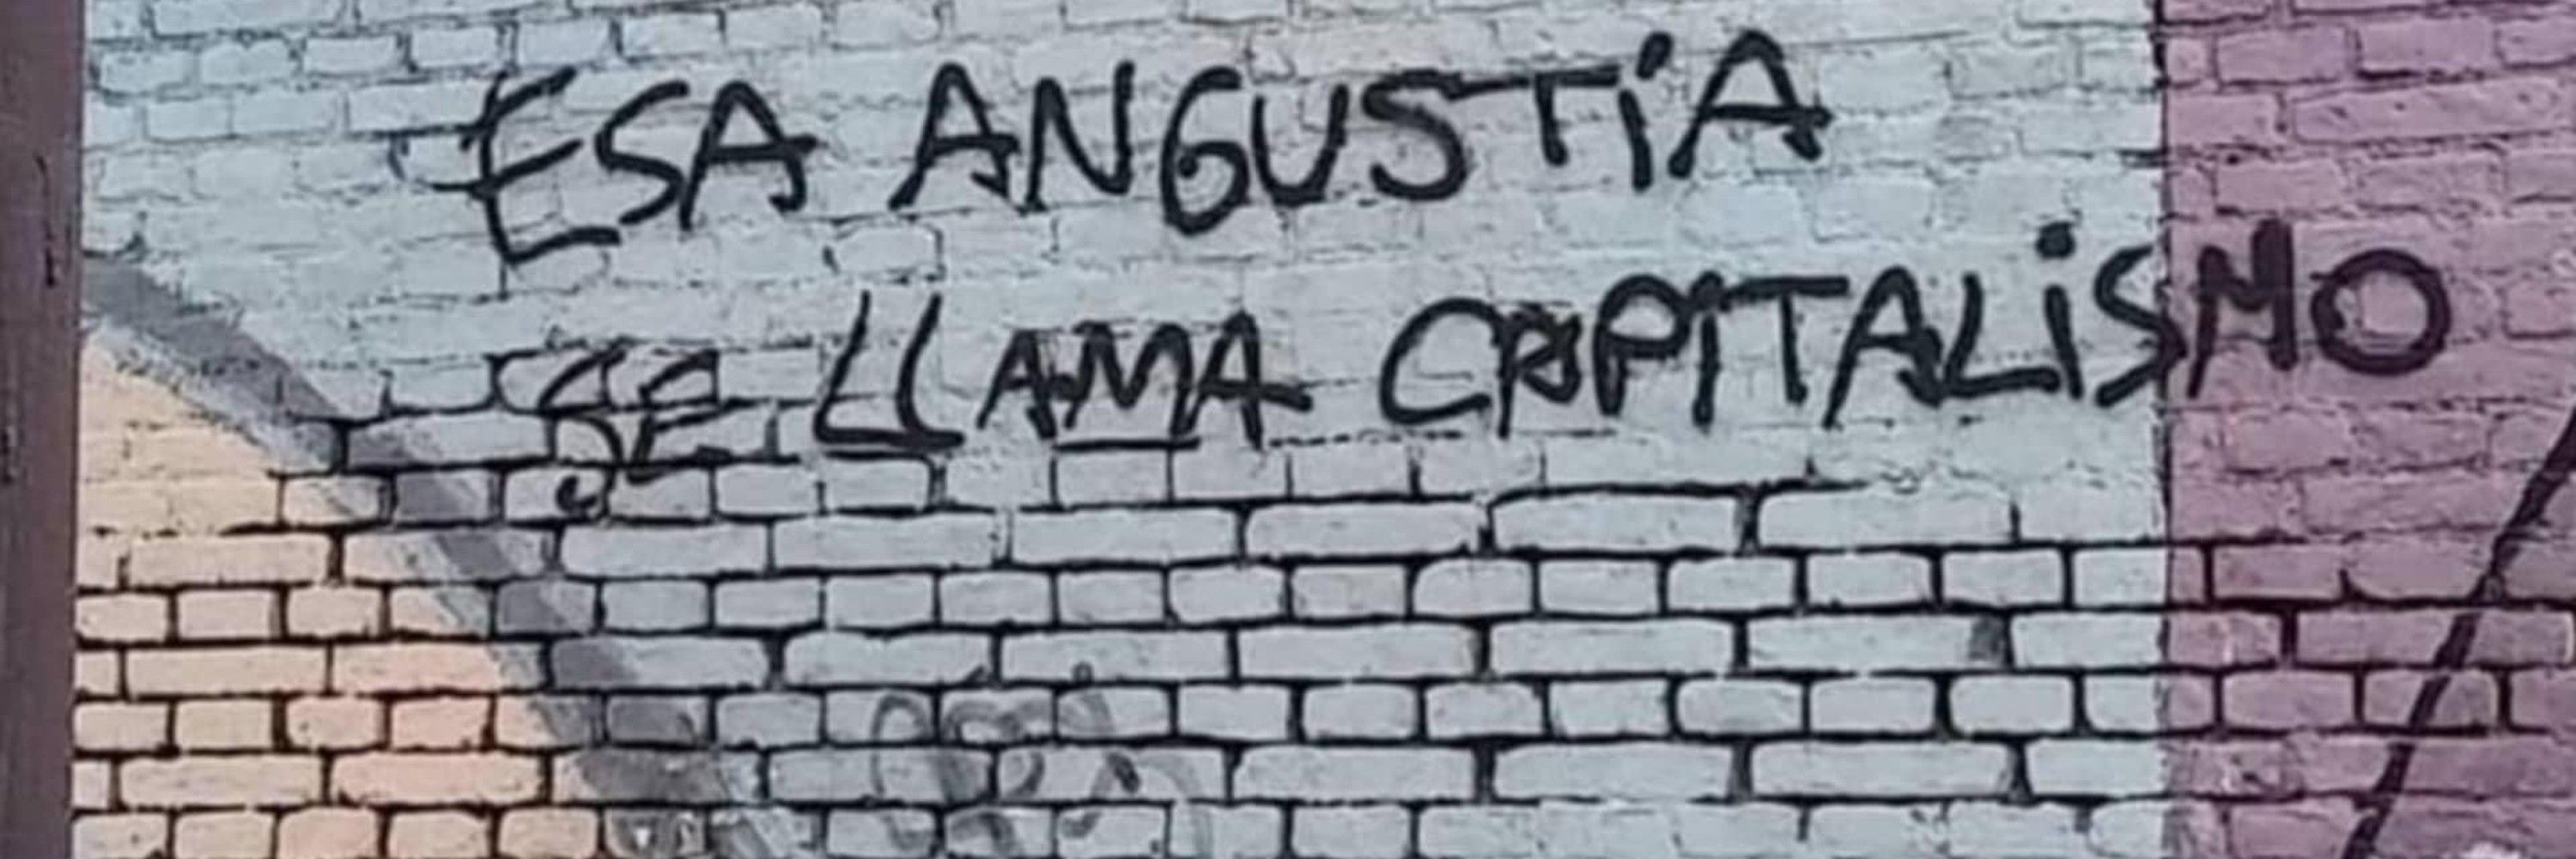 ESA ANGUSTiA
SE LLAMA CAPITALiSMO